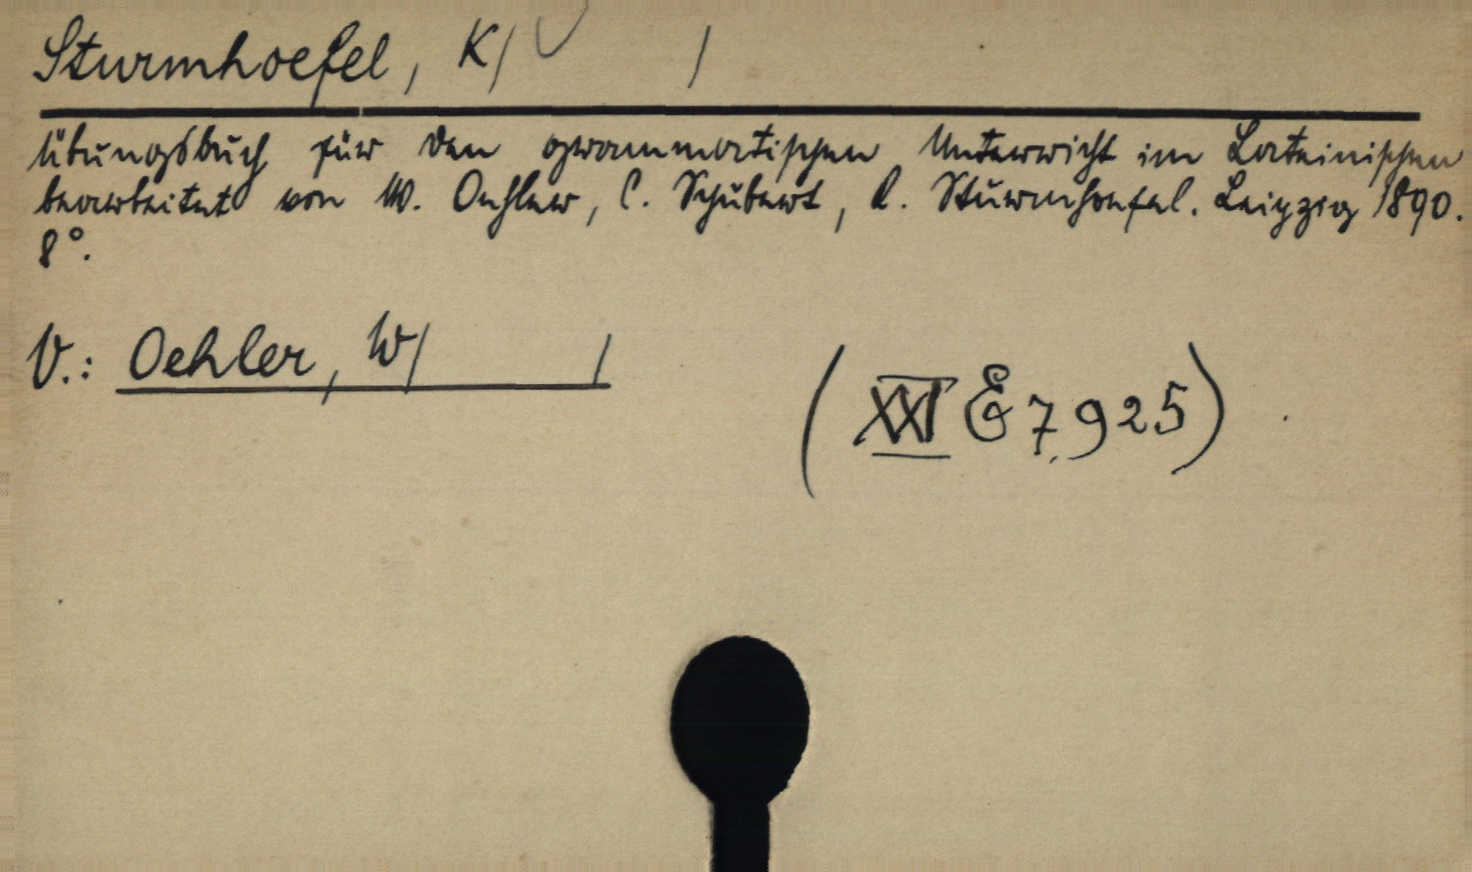 Sturmhoefel, K/ /
Übungsbuch für den grammatischen Unterricht im Lateinischen
bearbeitet von W. Oehler, C. Schubert, K. Sturmhoefel. Leipzig 1890.
8°.
V.: Oehler, W/ /
(XXI E 7925)